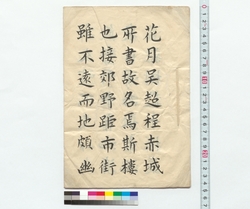 花月吳超程赤城
所書故名焉斯樓
也接郊野距市街
雖不遠而地頗幽